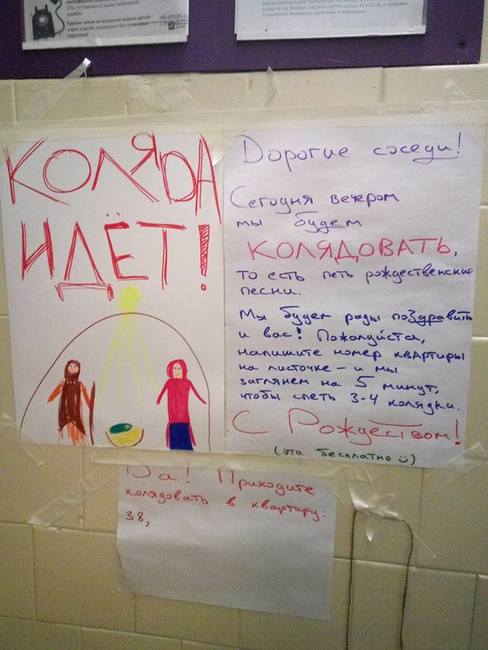 КОЛЯДА
ИДЁТ!
Дорогие соседи!
Сегодня вечером
мы будем
КОЛЯДОВАТЬ,
то есть петь рождественские
песни.
Мы будем рады поздравить
и вас! Пожалуйста,
напишите номер квартиры
на листочке – и мы
заглянем на 5 минут,
чтобы спеть 3-4 колядки.
С Рождеством!
(это бесплатно )
Да! Приходите
колядовать в квартиру:
38,